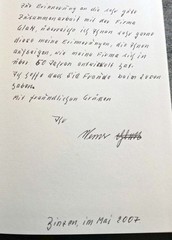 Zur Erinnerung an die sehr gute
Zusammenarbeit mit der Firma
überreiche ich Ihnen sehr gerne
diese meine Erinnerungen, die Ihnen
aufzeigen, wie meine Firma sich in
über 50 Jahren entwickelt hat.
Ich hoffe dass Sie Freude beim Lesen
haben.
Mit freundlichen Grüßen
Ihr
Werner
im Mai 2007